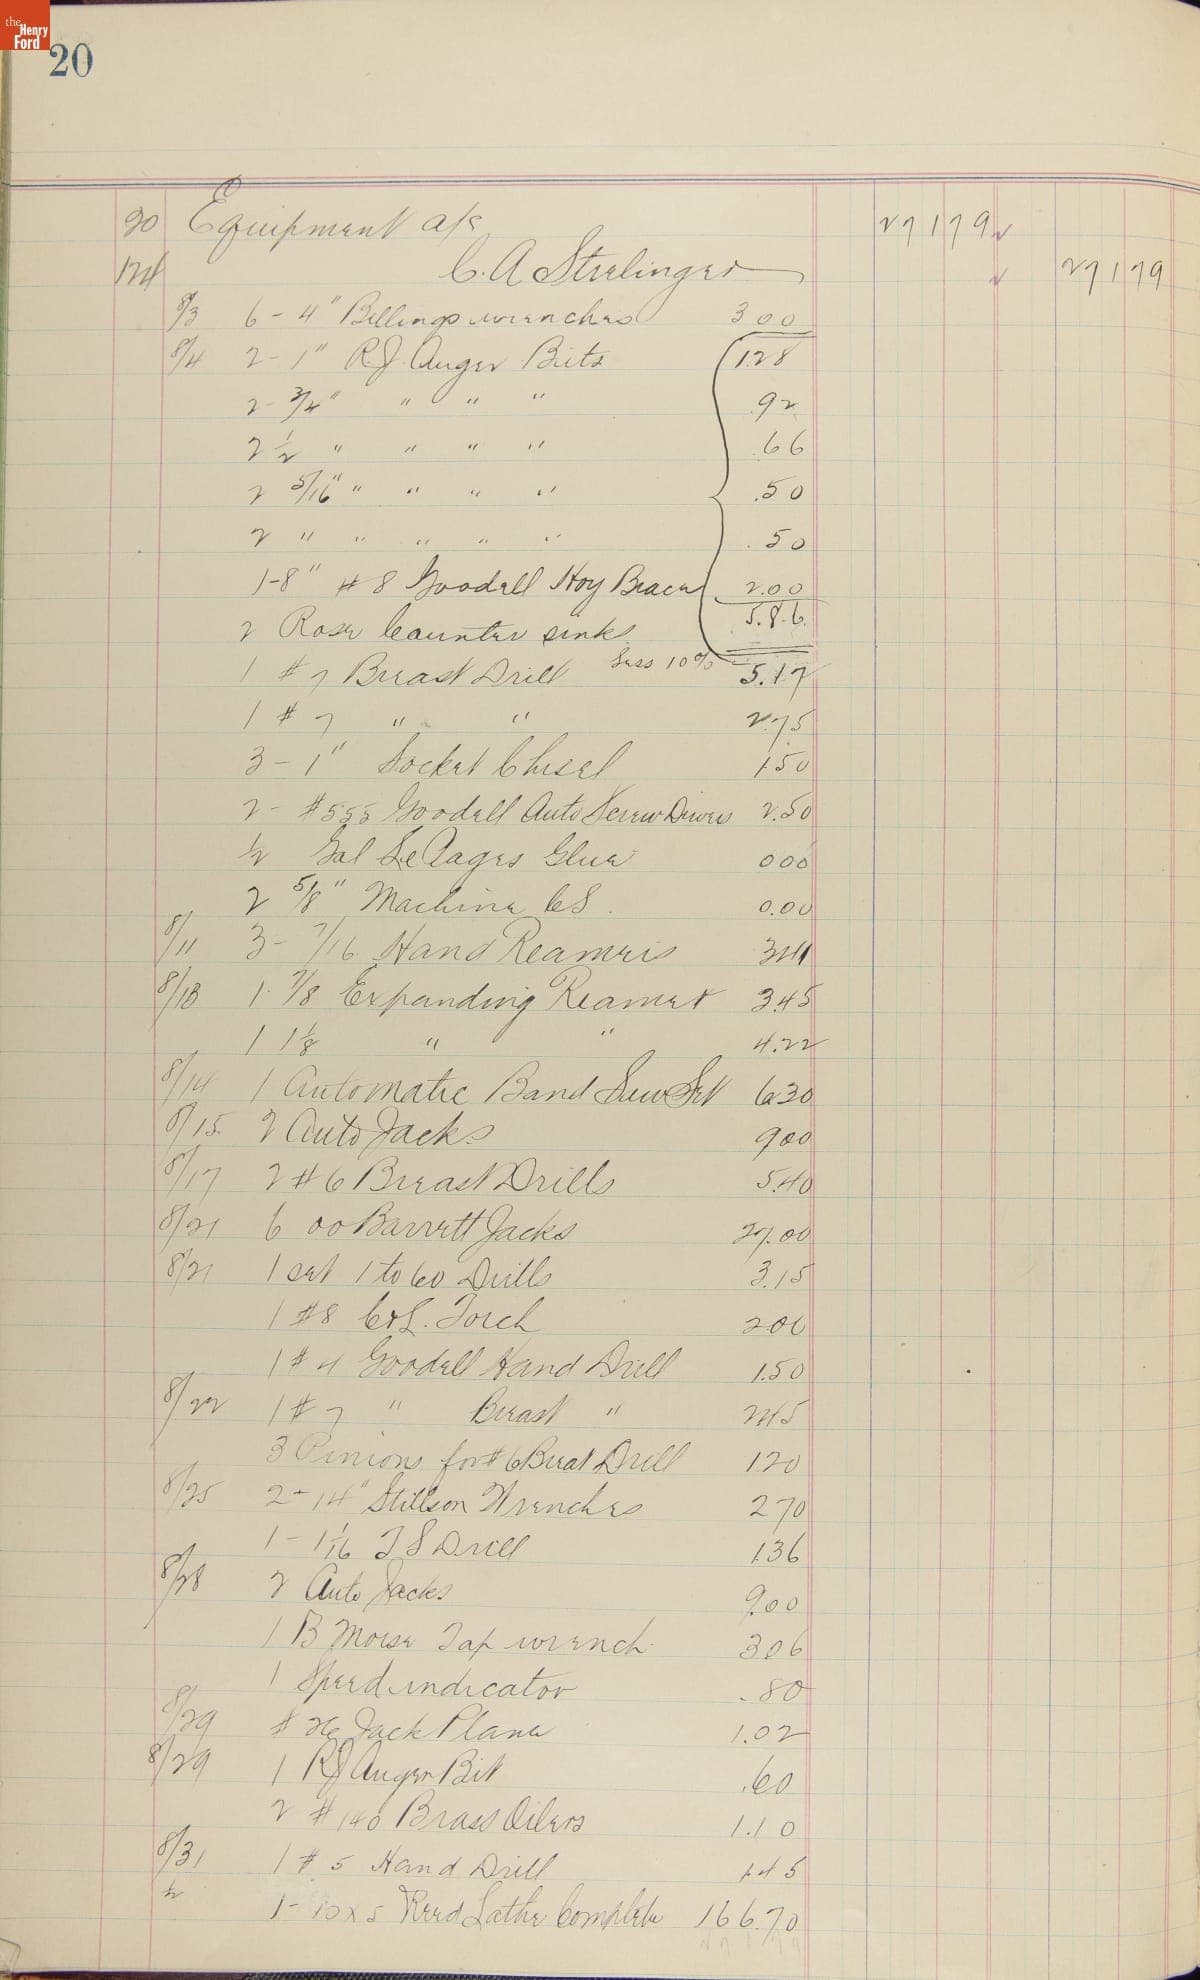 the Henry Ford
20
20 Equipment a/c 271 79
124 C. A Strelinger 271 79
8/3 6 - 4" Billings wrenches 3 00
8/4 2 - 1" R.J. Auger Bits 1.28
2 - 3/4" " " " .92
2 1/2 " " " " .66
2 5/16" " " " " .50
2 " " " " " .50
1-8" #8 Goodell Hoy Brace 2.00
5.86
2 Rose Counter sinks
Less 10%
1 #7 Breast Drill 5.17
1 #7 " " 2.75
3 - 1" Socket Chisel 1.50
2 - #555 Goodell Auto Screw Drivers 2.50
1/2 Gal Le Pages Glue 0 00
2 5/8" Machine CS. 0.00
8/11 3 - 7/16 Hand Reamers
8/13 1 7/8 Expanding Reamer 3.45
1 1 1/8 " " 4.22
8/14 1 Automatic Band Saw Set 6.30
8/15. 2 Auto Jacks 9.00
8/17 2 #6 Breast Drills 5.40
8/21 6 00 Barrett Jacks 27.00
8/21 1 set 1 to 60 Drills 3.15
1 #8 C&L. Torch 2.00
1 #4 Goodell Hand Drill 1.50
8/22 1 #7 " Breast " 2.45
3 Pinions for #6 Breat Drill 1.20
8/25 2 - 14" Stillson Wrenches 2 70
1 - 1 1/16 T S Drill 1.36
8/28 2 Auto Jacks 9.00
1 B Morse Tap wrench 3.06
1 Speed indicator .80
8/29 # 26 Jack Plane 1.02
8/29 1 RJ Auger Bit .60
2 #140 Brass Oilers 1.10
8/31 1 #5 Hand Drill 1.45
1 - 10 x 5 Reed Lathe Complete 166.70